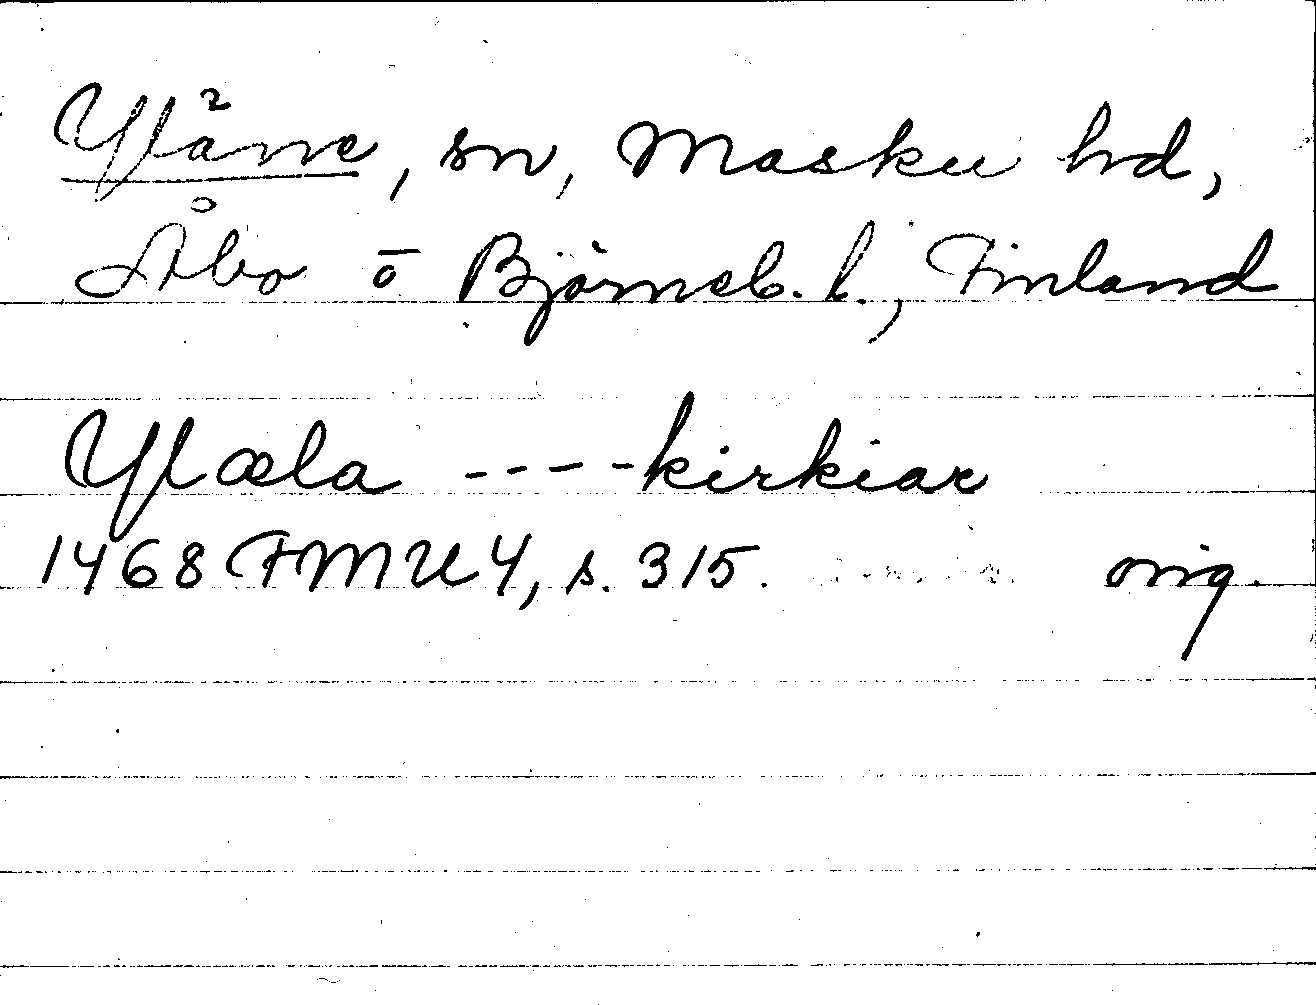 Yläne, sn, Masku hd,
Åbo o Björneb. l., Finland
Ylæla ---- kirkiar
1468 FMU 4, s. 315. orig.